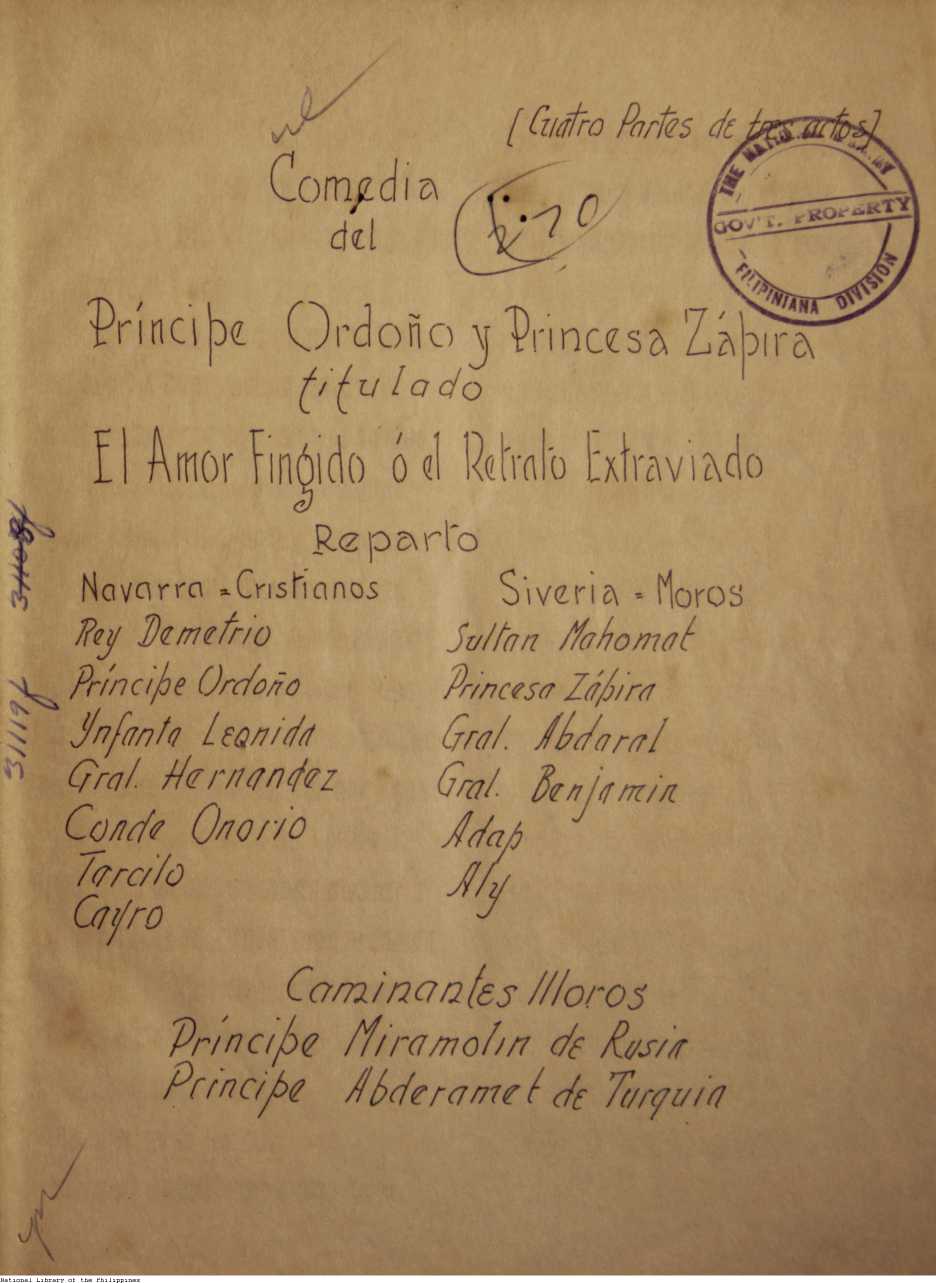 [Cuatro Partes de tres actos]
Comedia
del
THE NATIONAL LIBRARY
GOV'T. PROPERTY
FILIPINIANA DIVISION
Príncipe Ordoño y Princesa Zápira
titulado
El Amor Fingido ó el Retrato Extraviado
Reparto
Navarra = Cristianos
Rey Demetrio
Príncipe Ordoño
Ynfanta Leonida
Gral. Hernandez
Conde Onorio
Tarcilo
Cayro
Siveria = Moros
Sultan Mahomat
Princesa Zápira
Gral. Abdaral
Gral. Benjamin
Adap
Aly
Caminantes Moros
Príncipe Miramolin de Rusia
Príncipe Abderamet de Turquia
31119f
National Library of the Philippines